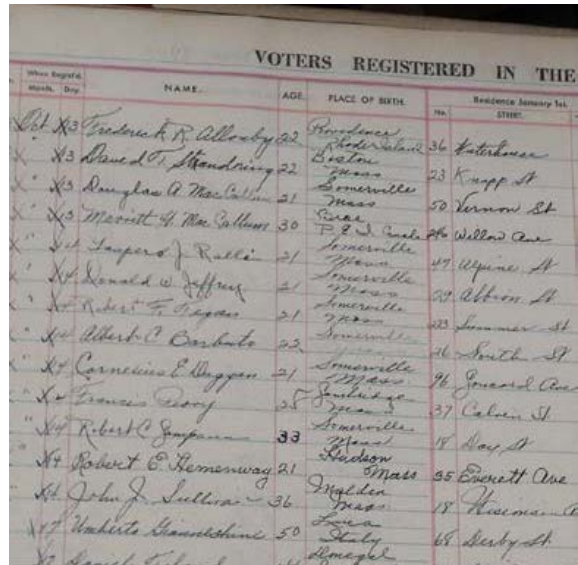 VOTERS REGISTERED IN THE
When Regist'd. NAME. AGE. PLACE OF BIRTH. Residence January 1st.
Month. Day. No. STREET.
Oct 3 Frederick R. Allonby 22 Providence Rhode Island 36 Waterhouse
" 3 David T. Standring 22 Boston Mass 23 Knapp St
" 3 Douglas A. MacCallum 21 Somerville Mass 50 Vernon St
" 3 Merritt H. MacCallum 30 P. E. I. Willow Ave
" 4 J. 21 Somerville Mass 47 Alpine St
" 4 Donald W Jeffrey 21 Somerville Mass 29 Albion St
" 4 Robert F. Fegan 21 Somerville Mass Summer St
" 4 Albert C Barbuto 22 Somerville 26 South St
" 4 Cornelius E. Duggan 21 Somerville Mass 96 Ave
" 4 Francis 25 Cambridge Mass 37 Calvin St
" 4 Robert C. 33 Somerville Mass 18 Day St
" 4 Robert E. Hemenway 21 Hudson Mass 35 Everett Ave
" 4 John J. Sullivan 36 Malden Mass 18 Wisconsin
" Umberto 50 Lucca Italy 68 Derby St.